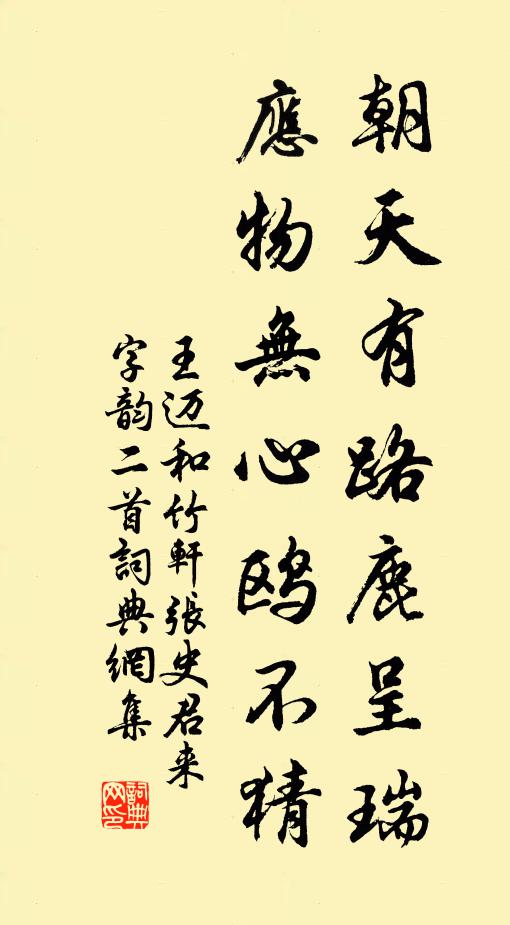 朝天有路鹿呈瑞
應物無心鸥不猜
王迈和竹軒張史君来
字韵二首詞典網集
詞典网印